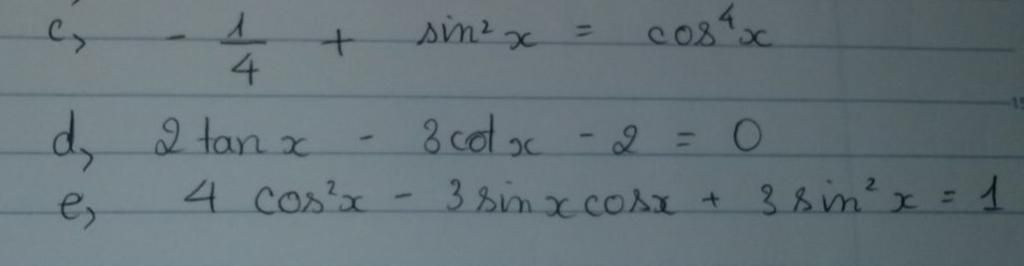 c, - 1/4 + sin²x = cos⁴x
d, 2 tan x - 3 cot x - 2 = 0
e, 4 cos²x - 3 sin x cos x + 3 sin² x = 1